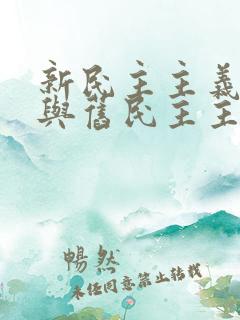 新民主主義
與舊民主主
暢然
未经同意禁止转载